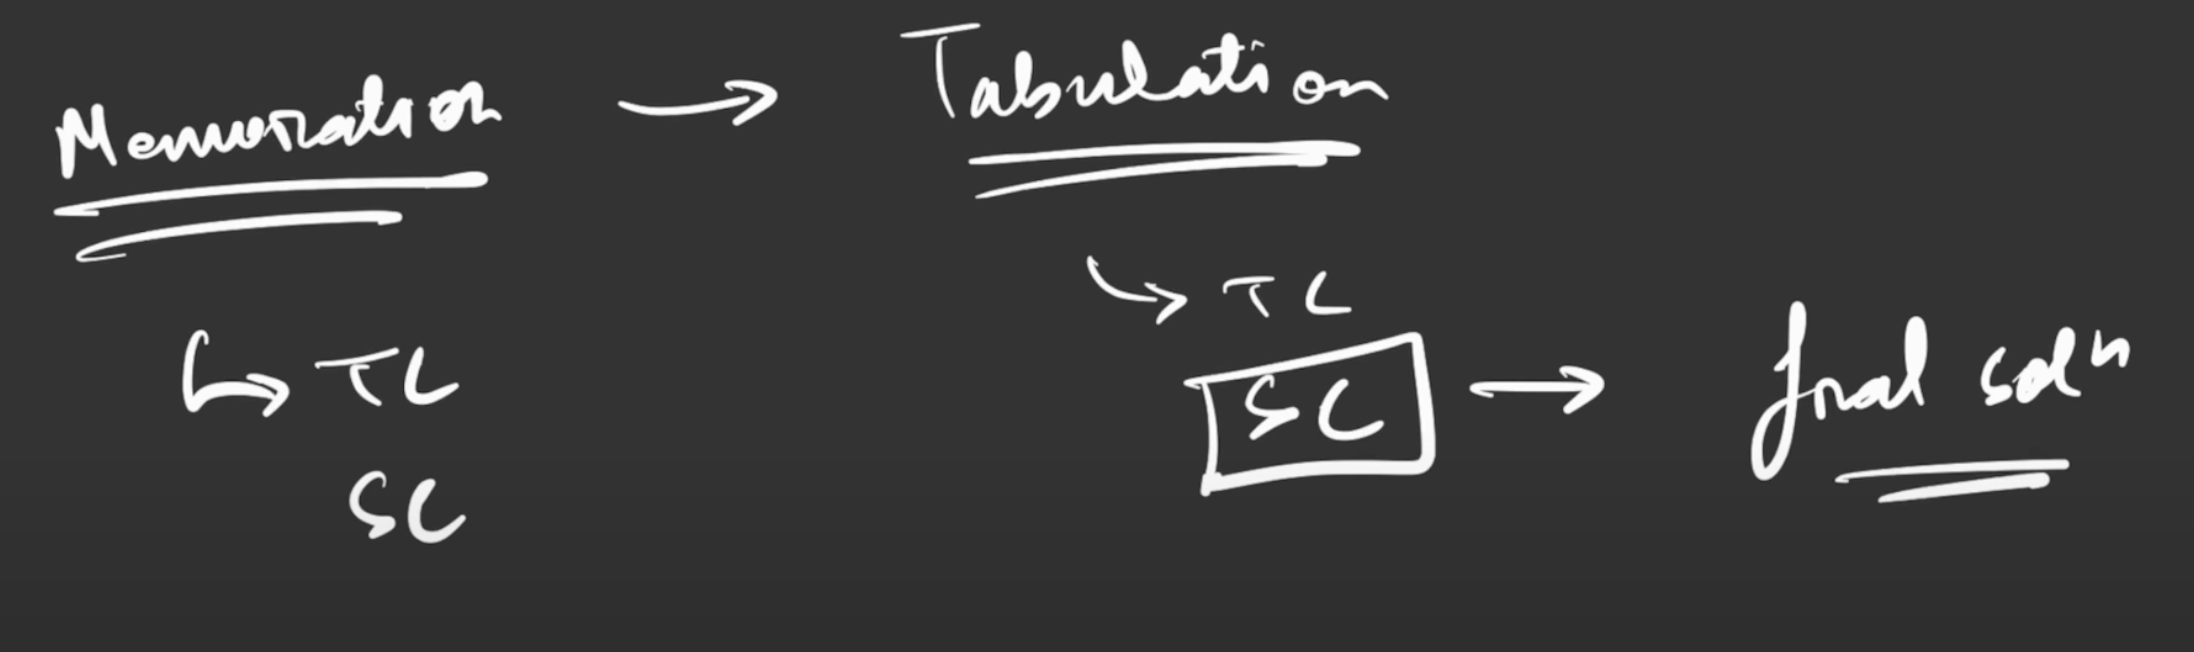 Memoization → Tabulation
↳ TC
SC
↳ TC
SC → final soln